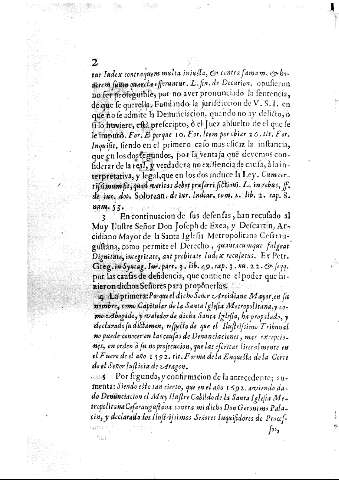 2
tur Index contra quem multa iniusta, & contra famam, & ho-
norem suum querelæ efferuntur. L. fin. de Decurion. opusieron
no ser proseguible, por no aver pronunciado la sentencia,
de que se querella. Fundando la jurisdiccion de V. S. I. en
que no se admite la Denunciacion, quando no ay delicto, o
si lo huviere, està prescripto, ò el Juez absuelto de el que se
le imputò. For. E porque 10. For. Item por obiar 26. tit. For.
Inquisit. siendo en el primero caso mas eficaz la instancia,
que en los dos segundos, por la ventaja què devemos con-
siderar de la real, y verdadera no existencia de causa, à la in-
terpretativa, y legal, que en los dos induce la Ley. Cum cer-
tissimum sit, quod veritas debet præferri fictioni. L. in rebus, ff.
de iur. dot. Solorzan. de iur. Indiar. tom. 2. lib. 2. cap. 8.
num. 53.
3 En continuacion de sus defensas, han recusado al
Muy Ilustre Señor Don Joseph de Exea, y Descartin, Ar-
cidiano Mayor de la Santa Iglesia Metropolitana Cesarau-
gustana, como permite el Derecho, quantacumque fulgeat
Dignitate, integritate, aut probitate Iudex recusatus. Ex Petr.
Greg. in Syntag. Iur. part. 3. lib. 49. cap. 3. nu. 22. & seqq.
por las causas de desidencia, que contiene el poder que hi-
zieron dichos Señores para proponerlas.
4 La primera: Porque el dicho Señor Arcidiano Mayor, en su
nombre, como Capitular de la Santa Iglesia Metropolitana, y co-
mo Abogado, y valedor de dicha Santa Iglesia, ha propalado, y
declarado su dictamen, resuelto de que el Ilustrissimo Tribunal
no puede conocer en las causas de Denunciaciones, mas excepcio-
nes, en orden à su no prosecucion, que las ofertas literalmente en
el Fuero de el año 1592. tit. Forma de la Enquesta de la Corte
de el Señor Iusticia de Aragon.
5 Por segunda, y confirmacion de la antecedente; au-
menta: Siendo esto tan cierto, que en el año 1692. aviendo da-
do Denunciacion el Muy Ilustre Cabildo de la Santa Iglesia Me-
tropolitana Cesaraugustana contra mi dicho Don Geronimo Pala-
cio, y declarado los Ilustrissimos Señores Inquisidores de Proces-
sos,